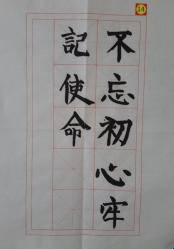 不忘初心牢
記使命
14